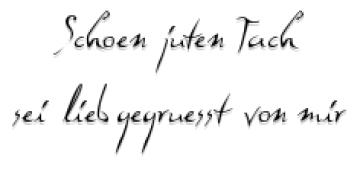 Schoen juten Tach
sei lieb gegruesst von mir